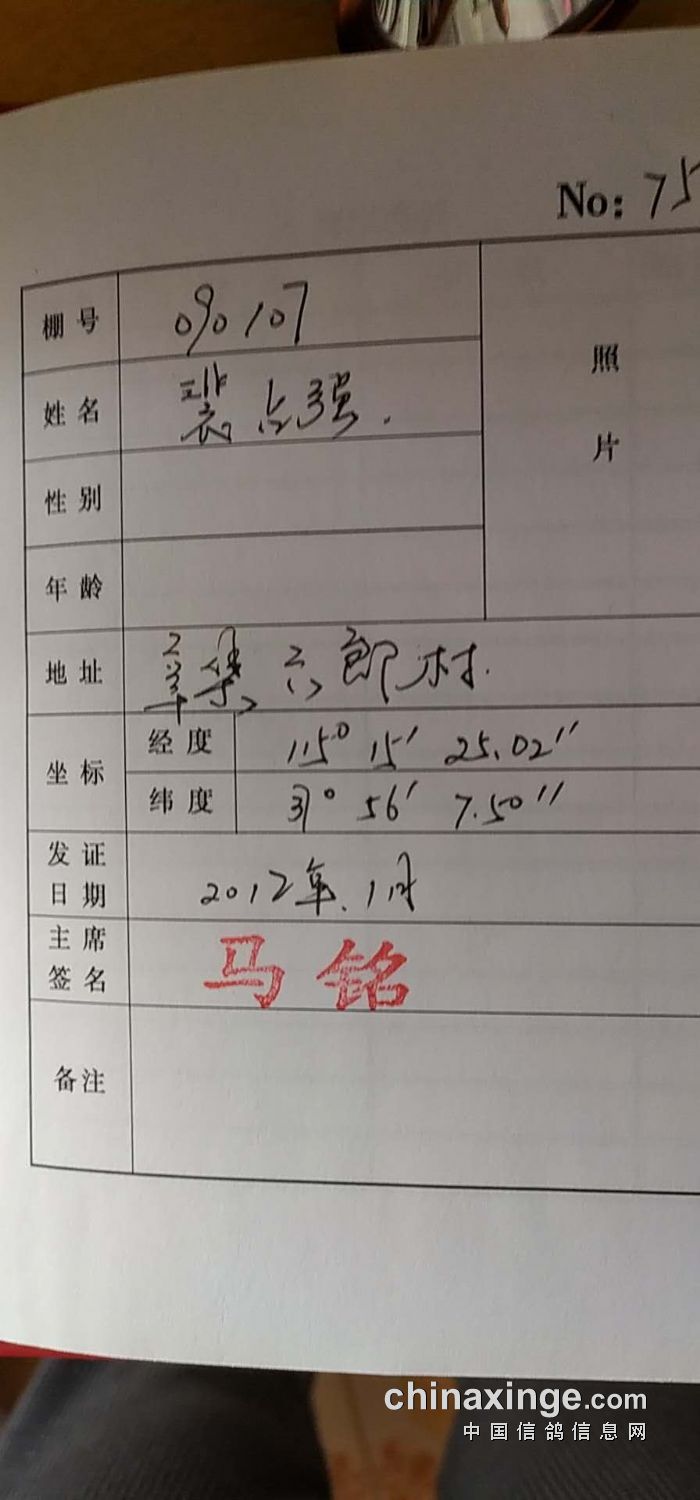 No: 75
棚号 090107
照片
姓名 裴占强.
性别
年龄
地址 辛集六郎村.
坐标 经度 115° 15′ 25.02″
纬度 37° 56′ 7.50″
发证日期 2012年.1月
主席签名 马铭
备注
chinaxinge.com
中国信鸽信息网